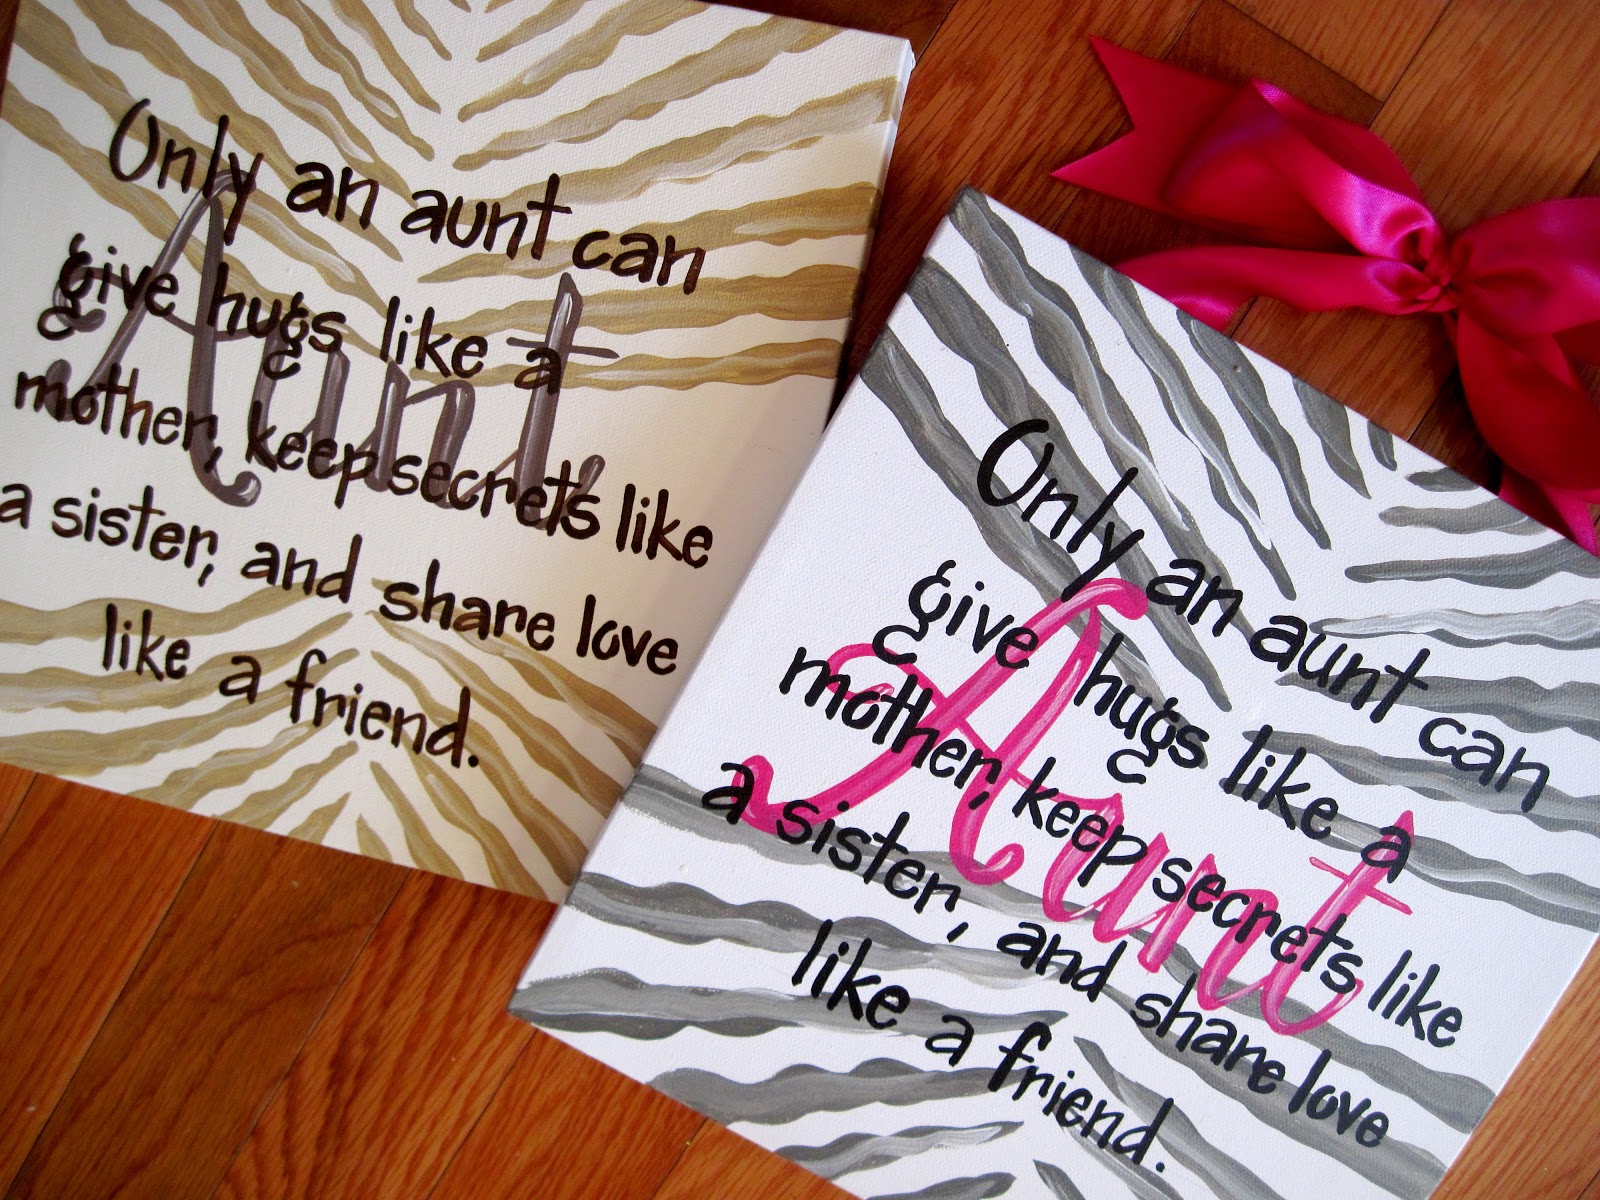 Only an aunt can
give hugs like a
mother, keep secrets like
a sister, and share love
like a friend.
Aunt
Only an aunt can
give hugs like a
mother, keep secrets like
a sister, and share love
like a friend.
Aunt